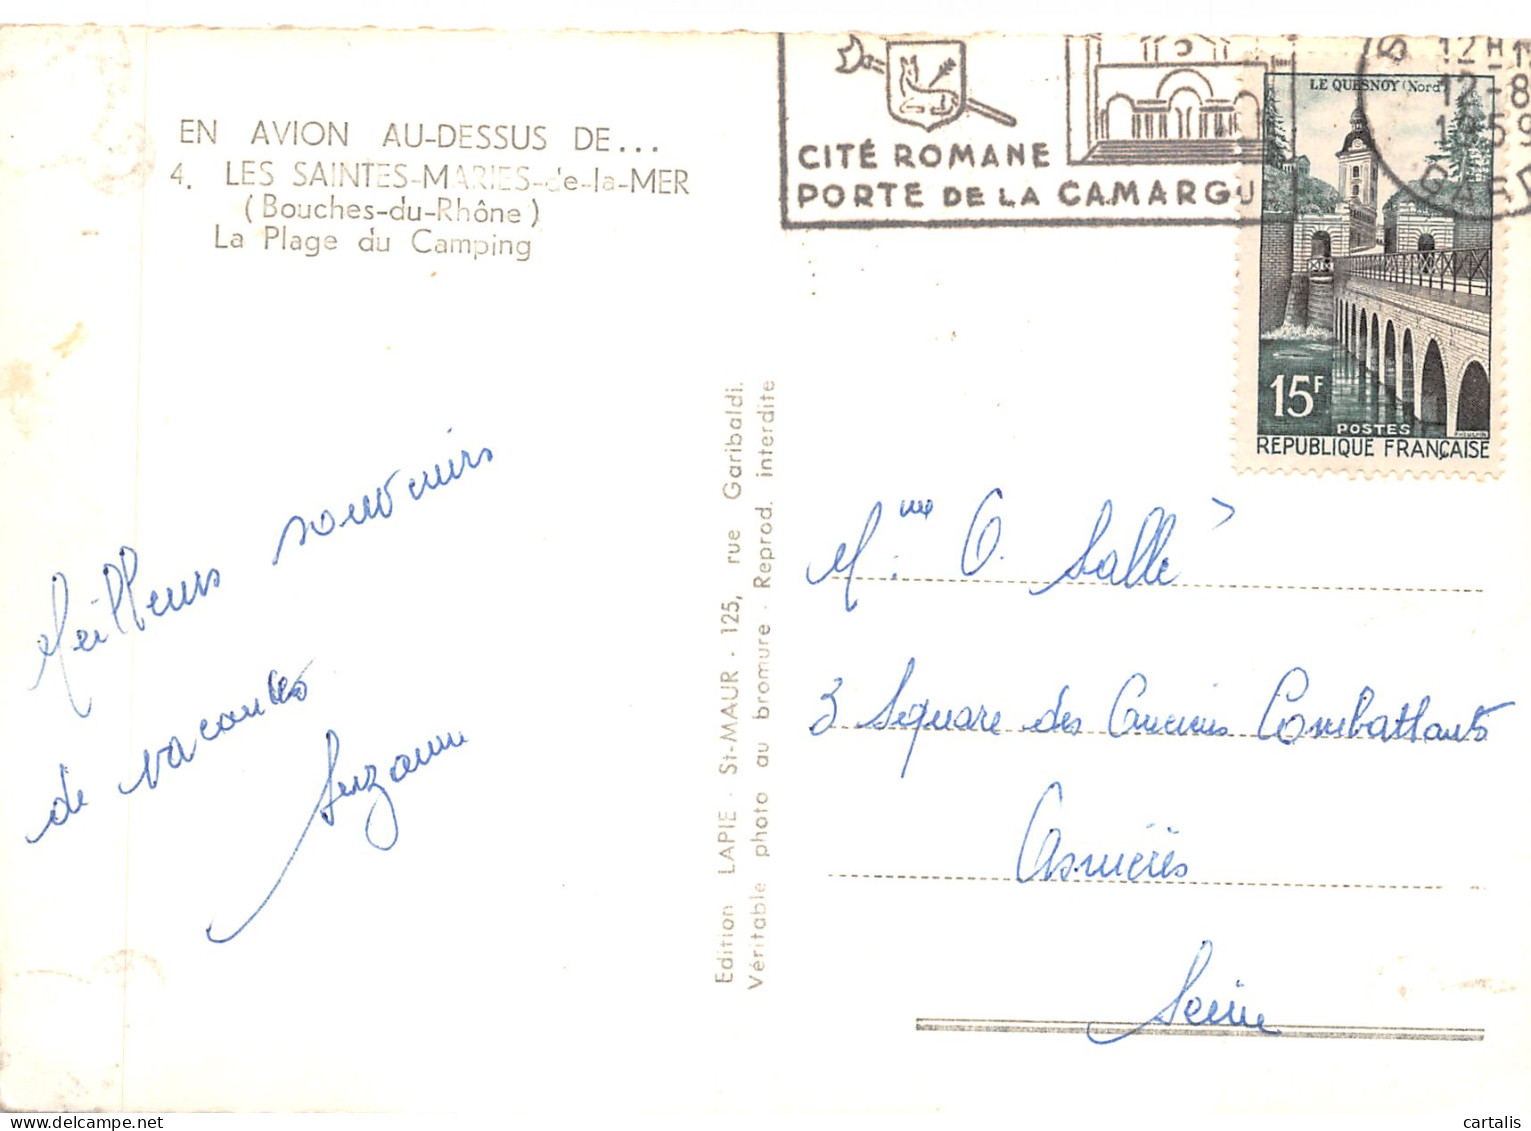 EN AVION AU-DESSUS DE...
4. LES SAINTES-MARIES-de-la-MER
(Bouches-du-Rhône)
La Plage du Camping
Meilleurs souvenirs
de vacances
Suzanne
Edition LAPIE - St-MAUR - 125, rue Garibaldi.
Véritable photo au bromure - Reprod. interdite
CITÉ ROMANE
PORTE DE LA CAMARGU
12H
12-8
1959
GARD
LE QUESNOY (Nord)
15F
POSTES
REPUBLIQUE FRANÇAISE
Mme O. Salle
3 Square des Anciens Combattants
Asnières
Seine
cartalis